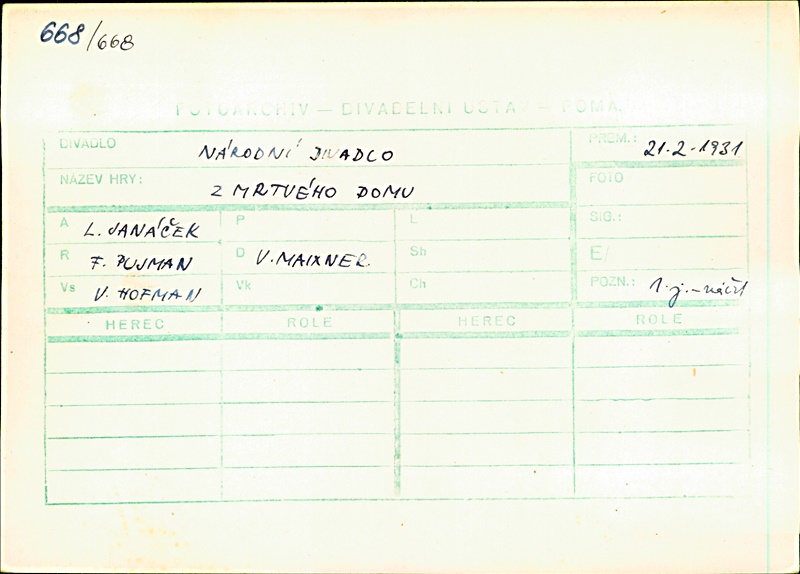 668/668
FOTOARCHIV — DIVADELNÍ ÚSTAV — FOMA
DIVADLO NÁRODNÍ DIVADLO PREM.: 21.2.1931
NÁZEV HRY: Z MRTVÉHO DOMU FOTO
A L. JANÁČEK P L SIG.:
R F. PUJMAN D V. MAIXNER Sh E/
Vs V. HOFMAN Vk Ch POZN.: 1.j.-náčrt
HEREC ROLE HEREC ROLE